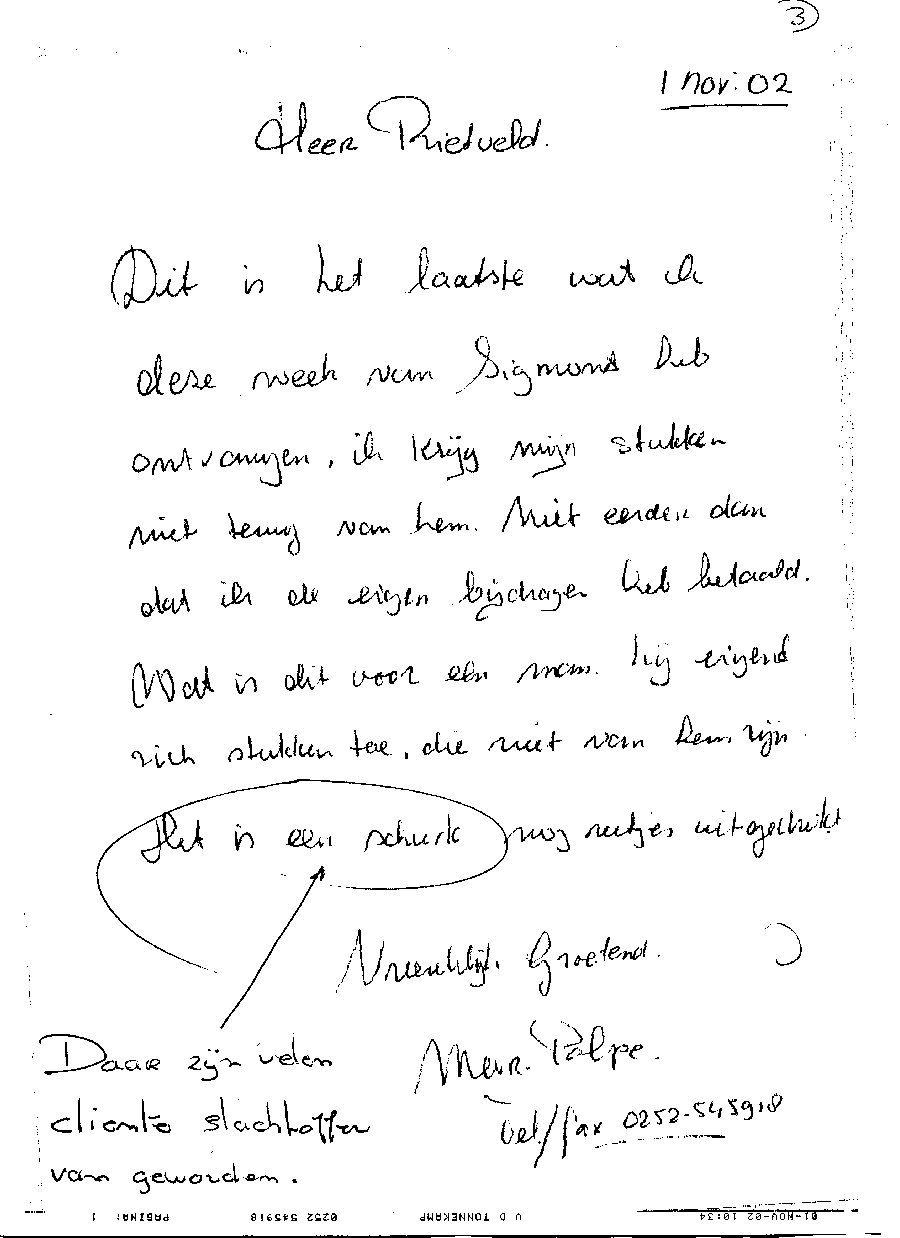 3
1 nov. 02
Heer Rietveld.
Dit is het laatste wat ik
deze week van Sigmond heb
ontvangen, ik krijg mijn stukken
niet terug van hem. Niet eerder dan
dat ik de eigen bijdragen heb betaald.
Wat is dit voor een man. hij eigend
zich stukken toe, die niet van hem zijn.
Het is een schurk nog netjes uitgedrukt
Vriendelijk Groetend.
Mevr. Palpe.
tel/fax 0252-545918
Daar zijn velen
cliente slachtoffer
van geworden.
01-NOV-02 10:34 V D TONNEKAMP 0252 545918 PAGINA: 1